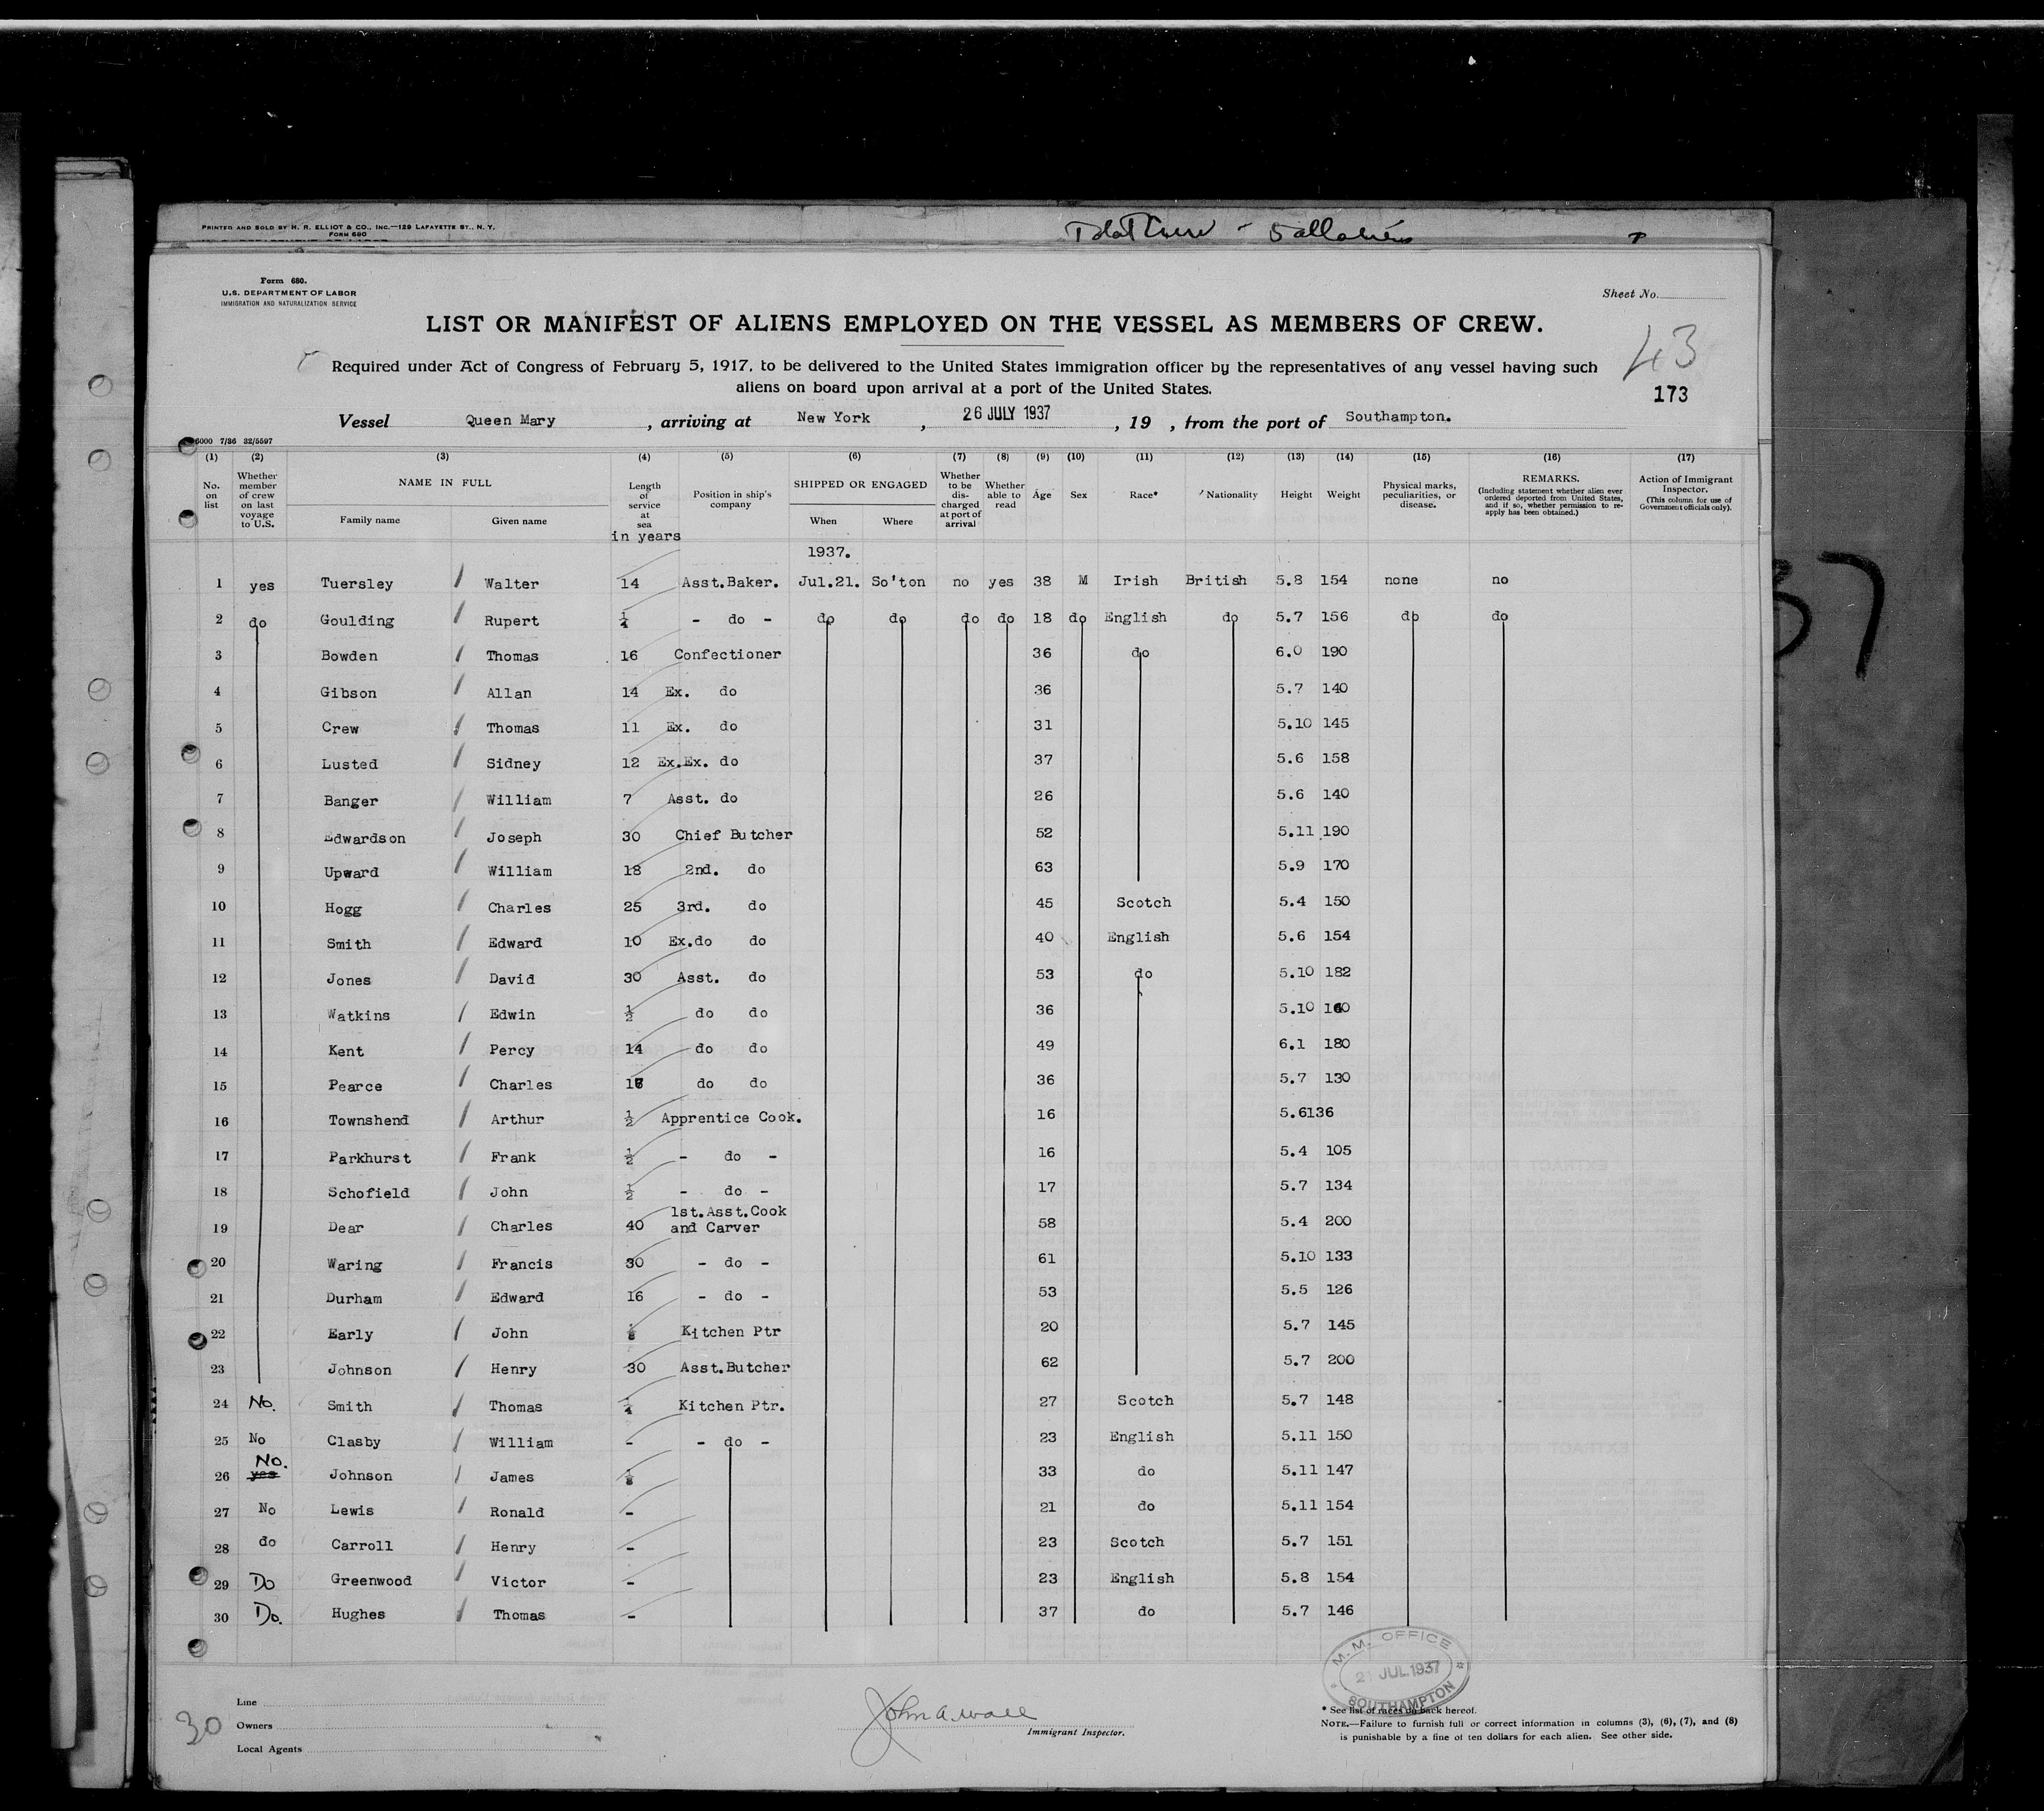 PRINTED AND SOLD BY H. R. ELLIOT & CO., INC.—129 LAFAYETTE ST., N. Y.
FORM 680
Form 680.
U.S. DEPARTMENT OF LABOR
IMMIGRATION AND NATURALIZATION SERVICE
Sheet No.
LIST OR MANIFEST OF ALIENS EMPLOYED ON THE VESSEL AS MEMBERS OF CREW.
43
Required under Act of Congress of February 5, 1917, to be delivered to the United States immigration officer by the representatives of any vessel having such
aliens on board upon arrival at a port of the United States.
173
Vessel Queen Mary, arriving at New York, 26 JULY 1937, 19 , from the port of Southampton.
6000 7/36 32/5597
(1) (2) (3) (4) (5) (6) (7) (8) (9) (10) (11) (12) (13) (14) (15) (16) (17)
No. on list
Whether member of crew on last voyage to U.S.
NAME IN FULL
Family name Given name
Length of service at sea in years
Position in ship's company
SHIPPED OR ENGAGED
When Where
Whether to be discharged at port of arrival
Whether able to read
Age
Sex
Race*
Nationality
Height
Weight
Physical marks, peculiarities, or disease.
REMARKS.
(Including statement whether alien ever ordered deported from United States, and if so, whether permission to reapply has been obtained.)
Action of Immigrant Inspector.
(This column for use of Government officials only).
1937.
1 yes Tuersley Walter 14 Asst.Baker. Jul.21. So'ton no yes 38 M Irish British 5.8 154 none no
2 do Goulding Rupert ¼ - do - do do do do 18 do English do 5.7 156 do do
3 Bowden Thomas 16 Confectioner 36 do 6.0 190
4 Gibson Allan 14 Ex. do 36 5.7 140
5 Crew Thomas 11 Ex. do 31 5.10 145
6 Lusted Sidney 12 Ex.Ex. do 37 5.6 158
7 Banger William 7 Asst. do 26 5.6 140
8 Edwardson Joseph 30 Chief Butcher 52 5.11 190
9 Upward William 18 2nd. do 63 5.9 170
10 Hogg Charles 25 3rd. do 45 Scotch 5.4 150
11 Smith Edward 10 Ex.do do 40 English 5.6 154
12 Jones David 30 Asst. do 53 do 5.10 182
13 Watkins Edwin ½ do do 36 5.10 160
14 Kent Percy 14 do do 49 6.1 180
15 Pearce Charles do do 36 5.7 130
16 Townshend Arthur ½ Apprentice Cook. 16 5.6136
17 Parkhurst Frank ½ - do - 16 5.4 105
18 Schofield John ½ - do - 17 5.7 134
19 Dear Charles 40 1st.Asst.Cook and Carver 58 5.4 200
20 Waring Francis 30 - do - 61 5.10 133
21 Durham Edward 16 - do - 53 5.5 126
22 Early John Kitchen Ptr 20 5.7 145
23 Johnson Henry 30 Asst.Butcher 62 5.7 200
24 No. Smith Thomas ¼ Kitchen Ptr. 27 Scotch 5.7 148
25 No Clasby William - - do - 23 English 5.11 150
26 No. yes Johnson James 33 do 5.11 147
27 No Lewis Ronald - 21 do 5.11 154
28 do Carroll Henry - 23 Scotch 5.7 151
29 Do Greenwood Victor - 23 English 5.8 154
30 Do. Hughes Thomas - 37 do 5.7 146
M. M. OFFICE
21 JUL 1937
SOUTHAMPTON
30
Line
Owners
Local Agents
John A Wall
Immigrant Inspector.
* See list of races on back hereof.
NOTE.—Failure to furnish full or correct information in columns (3), (6), (7), and (8)
is punishable by a fine of ten dollars for each alien. See other side.
37